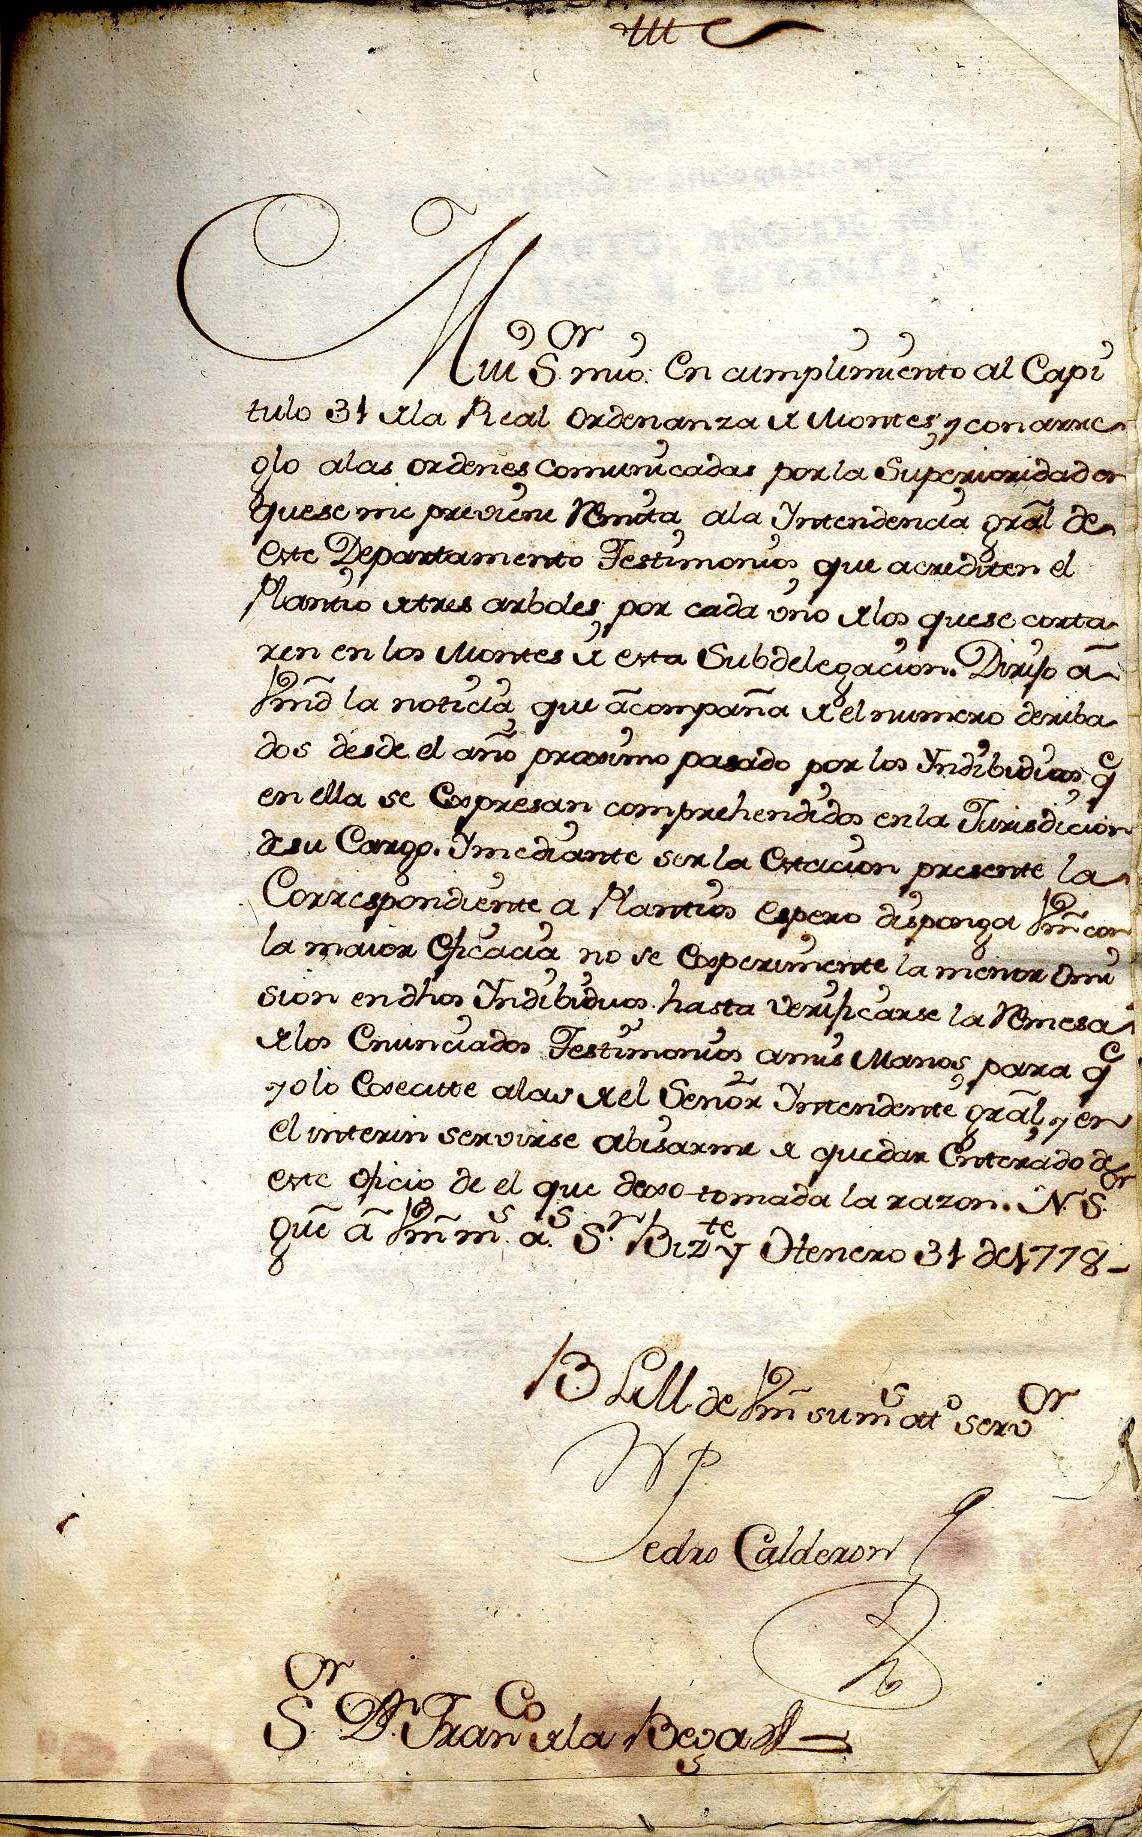 Mui S.or mio. En cumplimiento al Capi
tulo 31 de la Real Ordenanza de Montes, y con arre
glo a las ordenes comunicadas por la Superioridad en
que se me previene Remita a la Yntendencia grãl de
este Departamento Testimonios, que acrediten el
Plantio de tres arboles por cada uno de los que se corta
ren en los Montes de esta Subdelegacion. Dirijo ã
Vmd̃ la noticia, que ãcompaña de el numero deriba
dos desde el año proximo pasado por los Yndibiduos, q.e
en ella se Expresan comprehendidos en la Jurisdicion
de su Cargo. Y mediante ser la Estacion presente la
Correspondiente a Plantios espero disponga Vm̃ con
la maior Eficacia no se Experimente la menor Omi
sion en dhos Yndibiduos hasta verificarse la Remesa
de los Enunciados Testimonios a mis Manos, para q.e
yo lo Execute a las de el Señor Yntendente grãl, y en
el interin servirse abisarme de quedar Enterado de
este oficio de el que dexo tomada la razon. N. S.or
gue ã Vm̃ m.s a.s S.n Biz.te y Otenero 31 de 1778
B L M de Vm̃ su m.s att.o serv.or
Pedro Calderon
S.or D.n Fran.co de la Bega